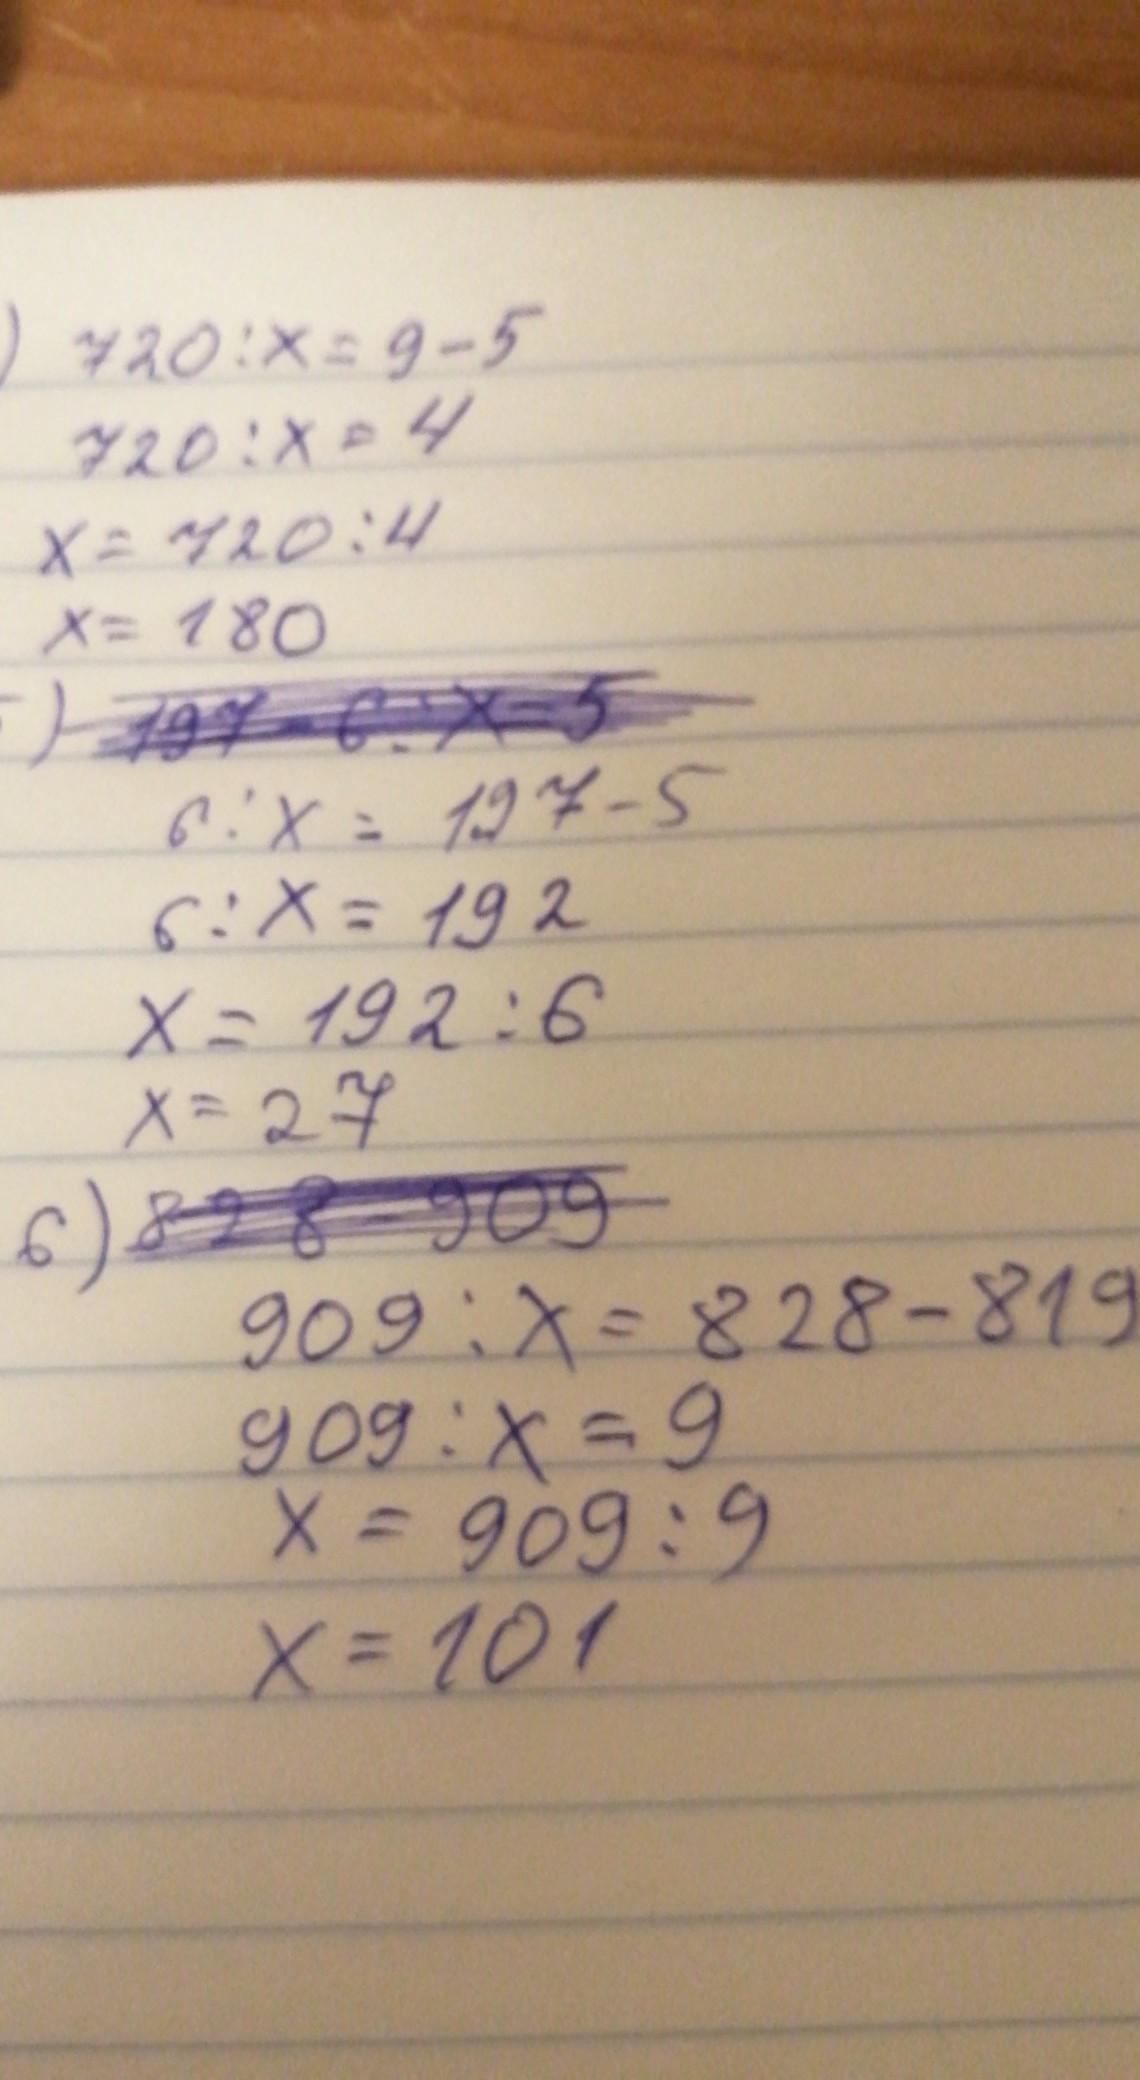 ) 720:x=9-5
720:x=4
x=720:4
x=180
) 197-6:x=5
6:x=197-5
6:x=192
x=192:6
x=27
6) 828-909
909:x=828-819
909:x=9
x=909:9
x=101